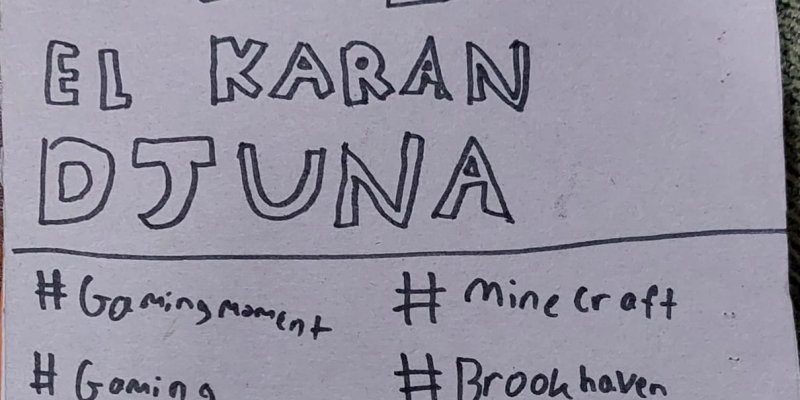 EL KARAN
DJUNA
#Gamingmoment #minecraft
#Gaming #Brookhaven